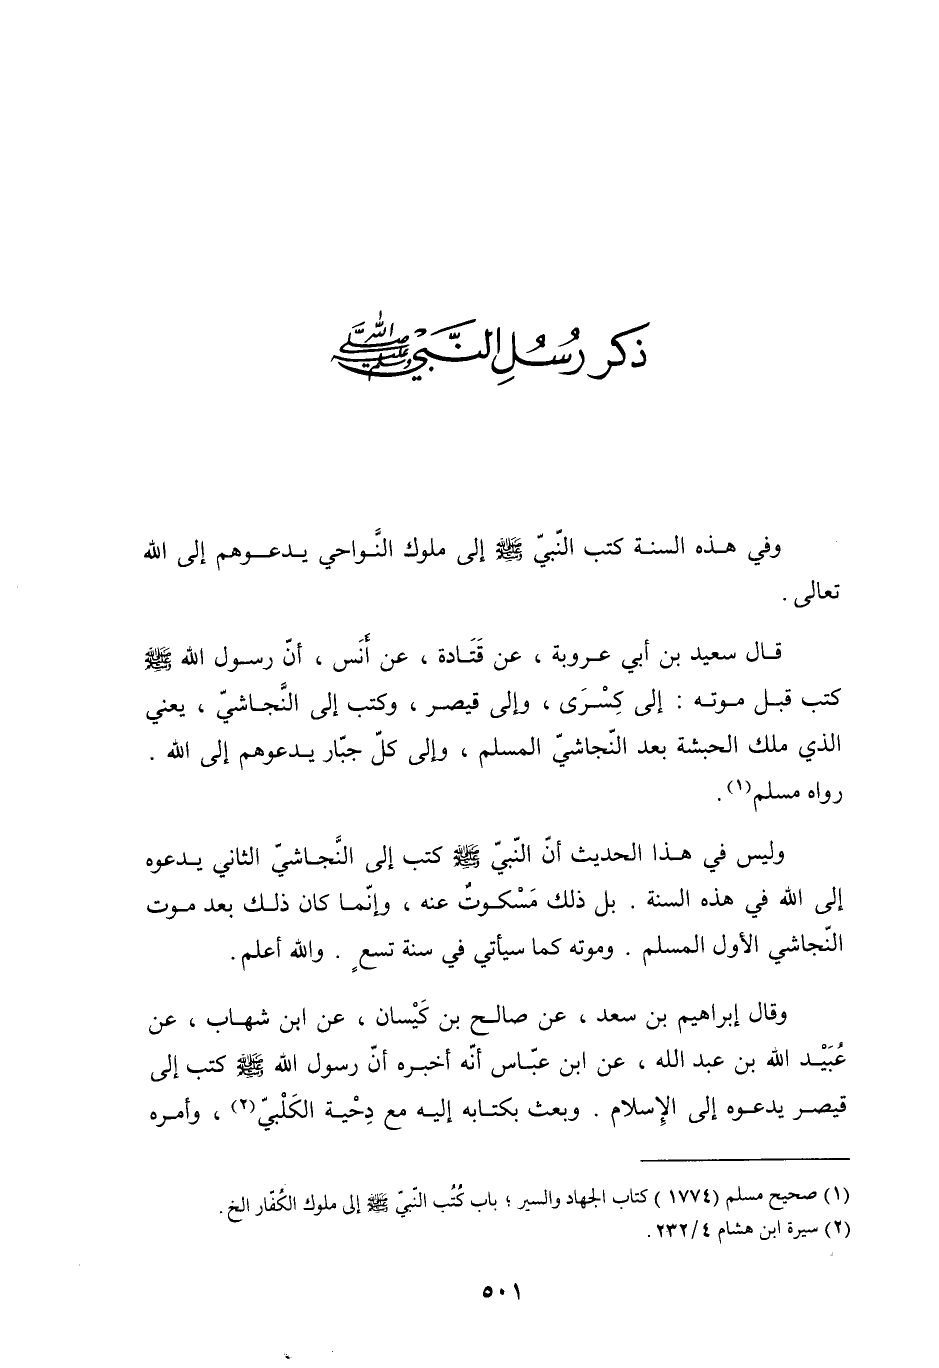 ذكر رُسُلِ النَّبيّ ﷺ
وفي هـذه السنـة كتب النّبيّ ﷺ إلى ملوك النَّـواحي يـدعـوهم إلى الله
تعالى .
قـال سعيد بن أبي عـروبة ، عن قَتَـادة ، عن أَنَس ، أنّ رسـول الله ﷺ
كتب قبـل مـوتـه : إلى كِسْـرَى ، وإلى قيصـر ، وكتب إلى النَّجـاشيّ ، يعني
الذي ملك الحبشة بعد النّجاشيّ المسلم ، وإلى كلّ جبّار يـدعوهم إلى الله .
رواه مسلم(١).
وليس في هـذا الحديث أنّ النّبيّ ﷺ كتب إلى النَّجـاشيّ الثاني يـدعوه
إلى الله في هذه السنة . بل ذلك مَسْكـوتٌ عنه ، وإنّمـا كان ذلـك بعد مـوت
النّجاشي الأول المسلم . وموته كما سيأتي في سنة تسعٍ . والله أعلم.
وقال إبراهيم بن سعد ، عن صالـح بن كَيْسان ، عن ابن شهـاب ، عن
عُبَيْـد الله بن عبد الله ، عن ابن عبّـاس أنّه أخبـره أنّ رسول الله ﷺ كتب إلى
قيصـر يدعـوه إلى الإسلام . وبعث بكتـابه إليـه مع دِحْيـة الكَلْبيّ(٢) ، وأمـره
(١) صحيح مسلم (١٧٧٤) كتاب الجهاد والسير ؛ باب كُتُب النّبيّ ﷺ إلى ملوك الكُفّار الخ .
(٢) سيرة ابن هشام ٢٣٢/٤.
٥٠١